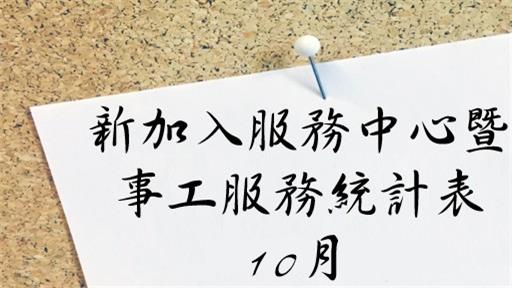 新加入服務中心暨
事工服務統計表
10月